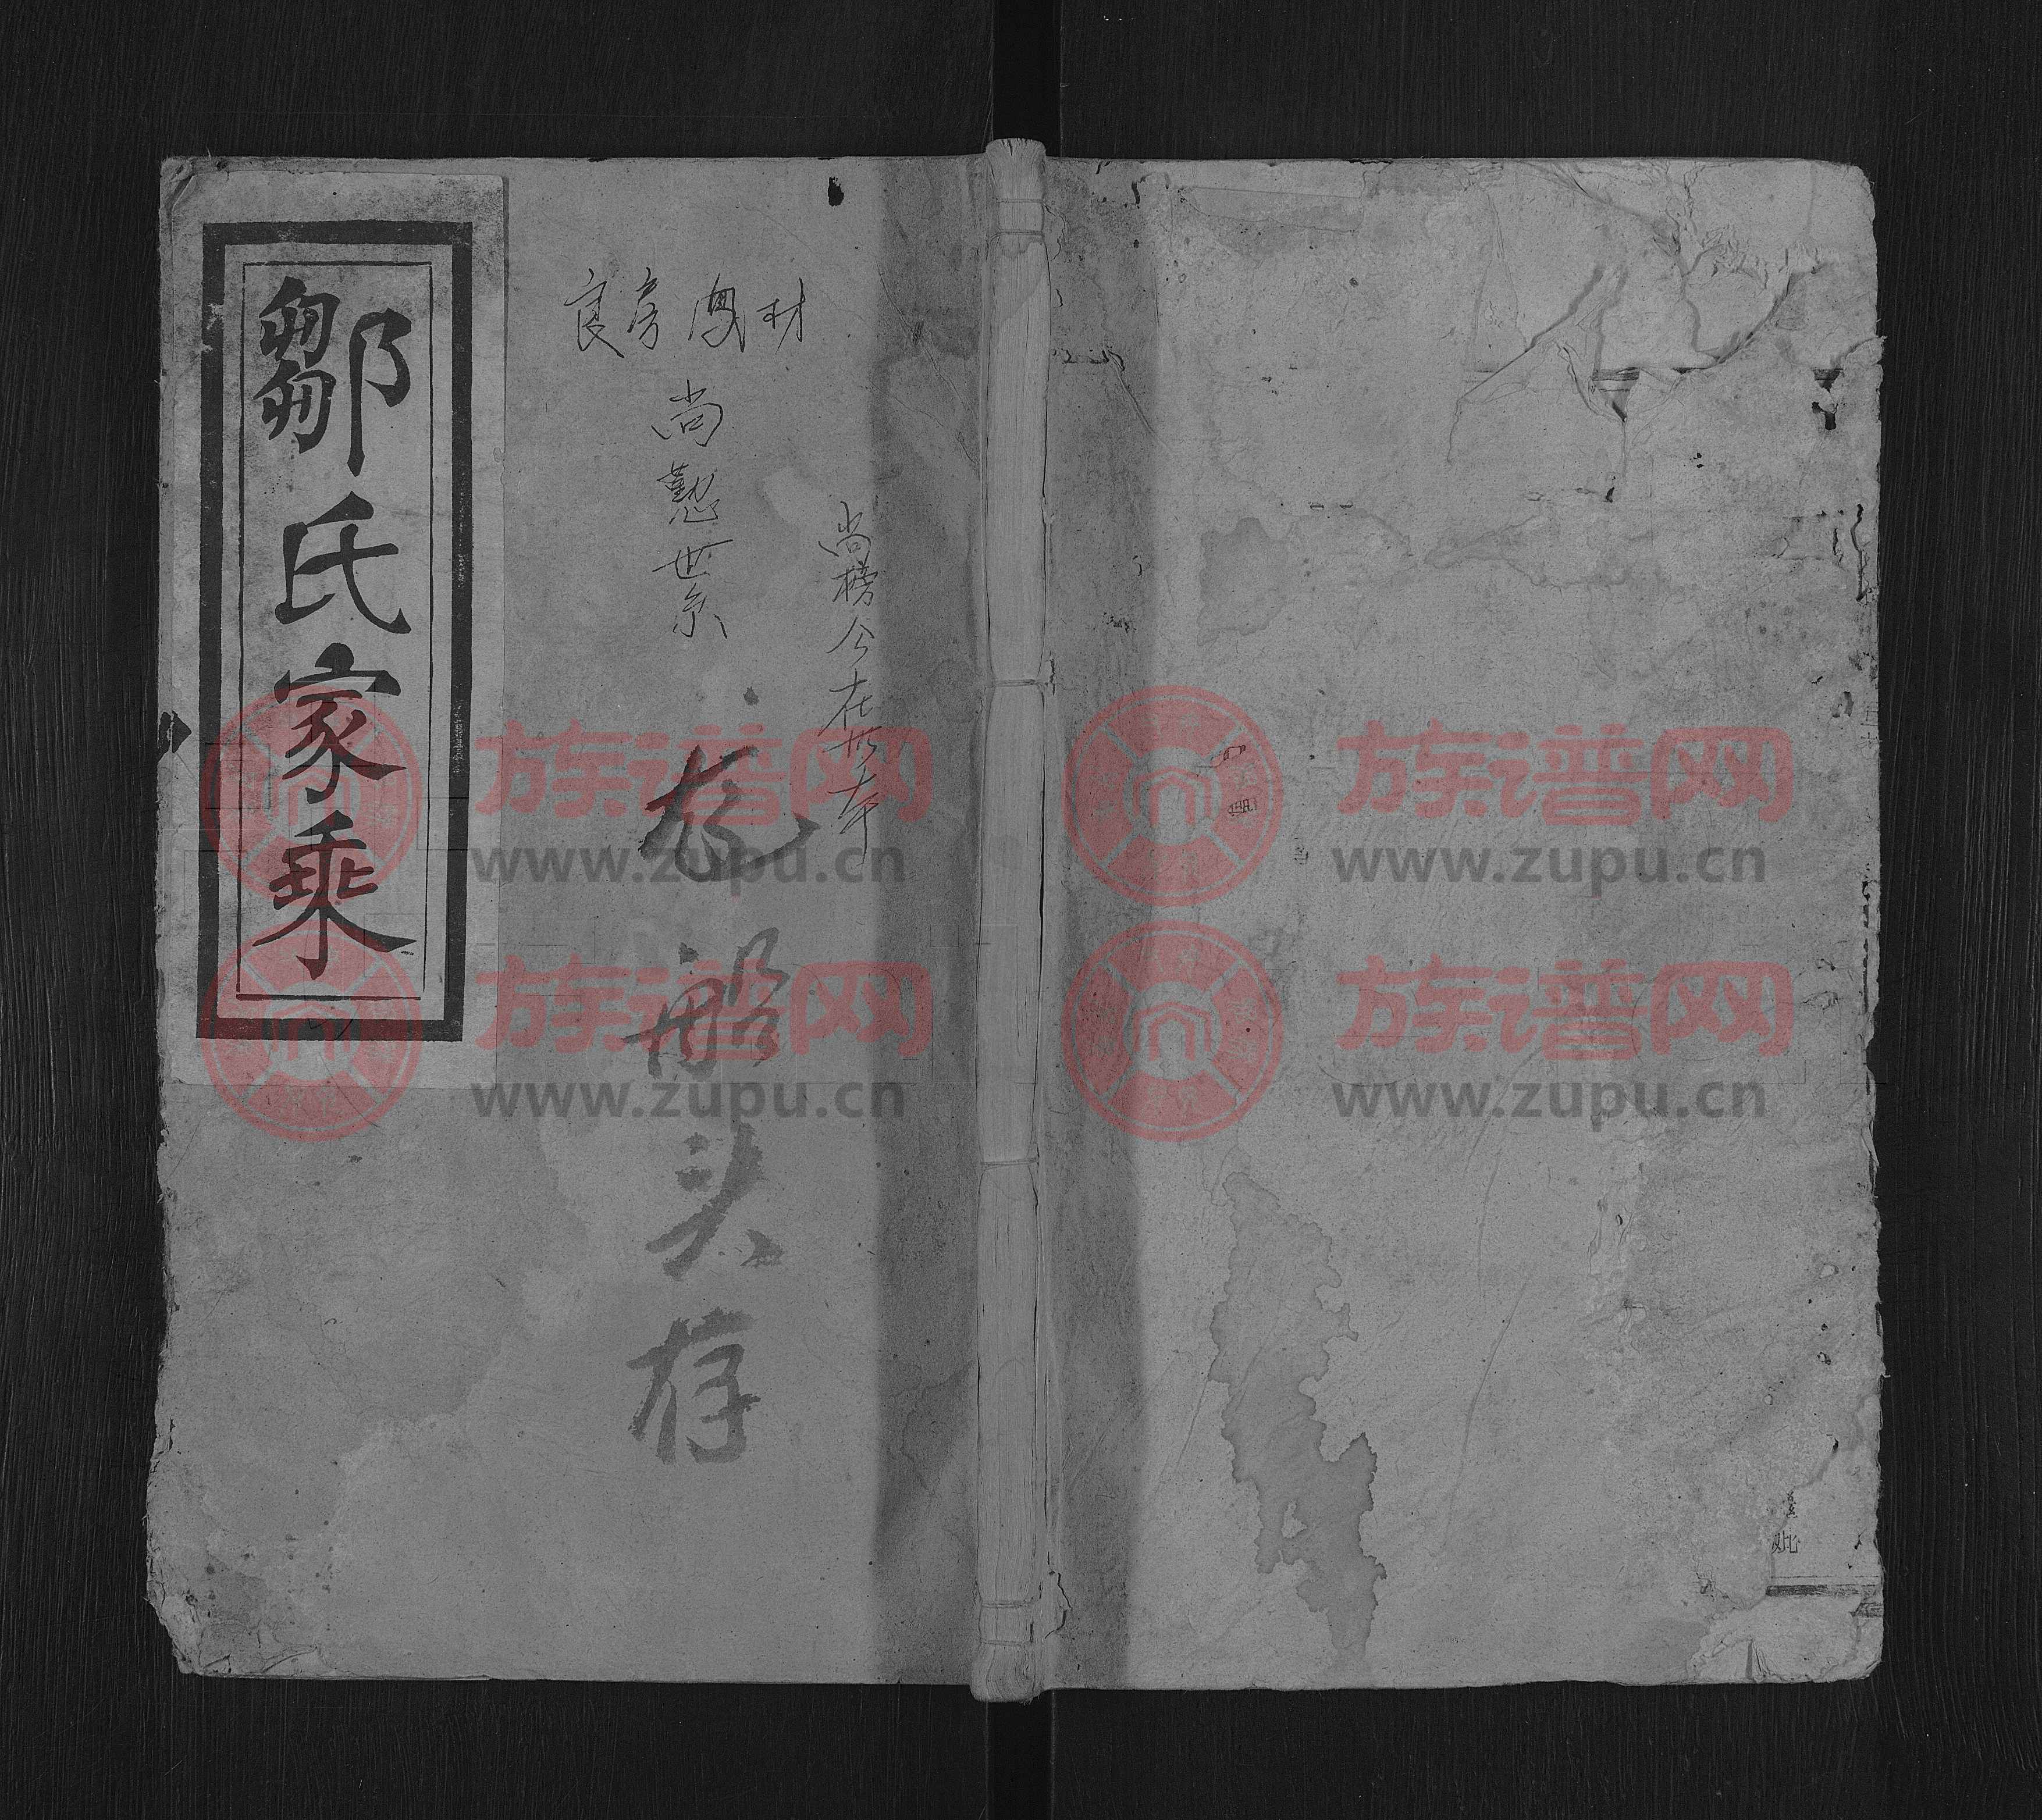 鄒氏家乘
良房
尚懃世系
尚榜公在世本
船头存
族谱网
www.zupu.cn
族谱网
www.zupu.cn
族谱网
www.zupu.cn
族谱网
www.zupu.cn